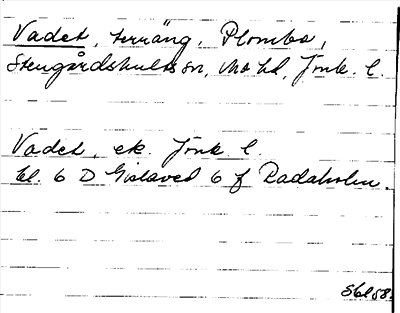 Vadet, terräng, Plombo,
Stengårdshults sn, Mo hd, Jönk. l.
Vadet, ek. Jönk l.
bl. 6 D Gislaved 6 f Radaholm.
Skl 58.